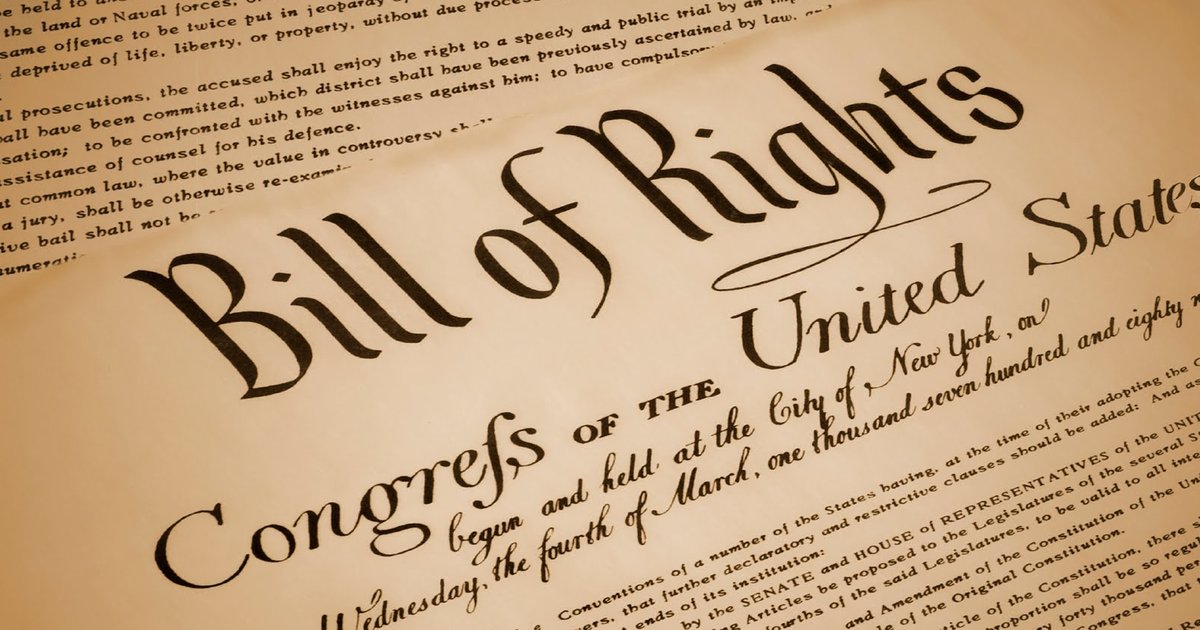 be held to
the land or Naval forces,
same offence to be twice put in jeopardy
deprived of life, liberty, or property, without due process
prosecutions, the accused shall enjoy the right to a speedy and public trial by an
have been committed, which district shall have been previously ascertained by law,
to be confronted with the witnesses against him; to have
assistance of counsel for his defence.
common law, where the value in controversy
a jury, shall be otherwise
bail shall not be
Bill of Rights
Congreſs OF THE United States
begun and held at the City of New York, on
Wednesday, the fourth of March, one thousand seven hundred and eighty
Conventions of a number of the States having, at the time of their adopting the
that further declaratory and restrictive clauses should be added: And as
ends of its institution:
by the SENATE and HOUSE of REPRESENTATIVES of the
Articles be proposed to the Legislatures of the several
of the said Legislatures, to be valid to all
and Amendment of the Constitution of the
of the Original Constitution.
of the Constitution, there
proportion shall be so
forty thousand
Congress, that